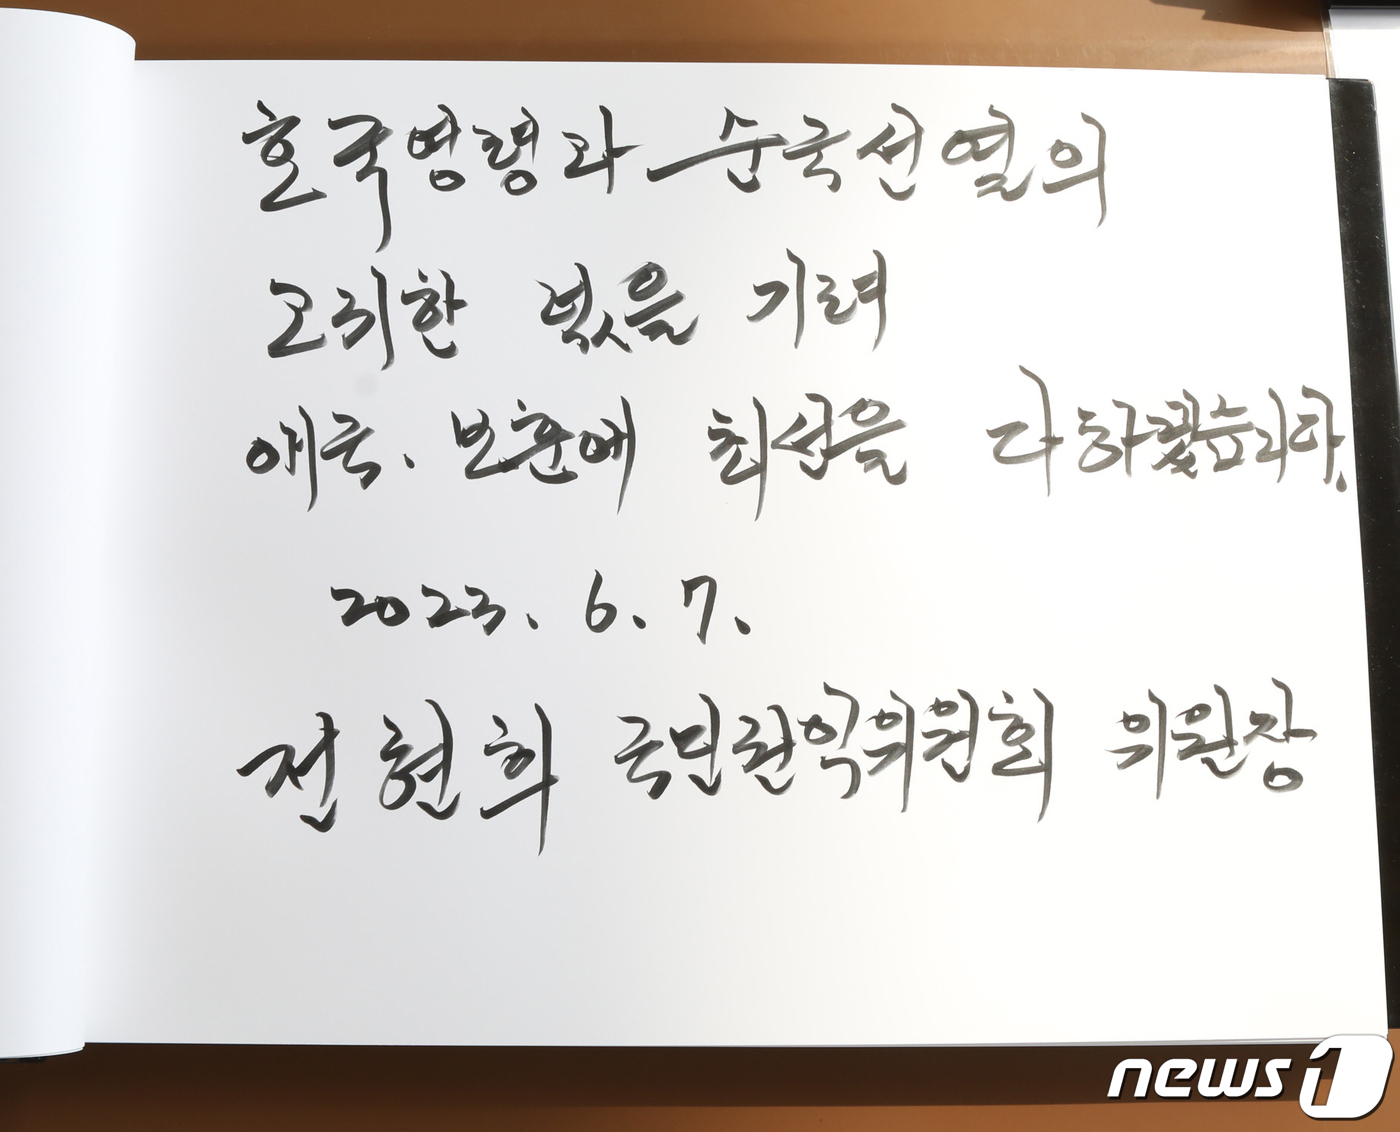 호국영령과 순국선열의
고귀한 넋을 기려
애국. 보훈에 최선을 다하겠습니다.
2023. 6. 7.
전현희 국민권익위원회 위원장
news1